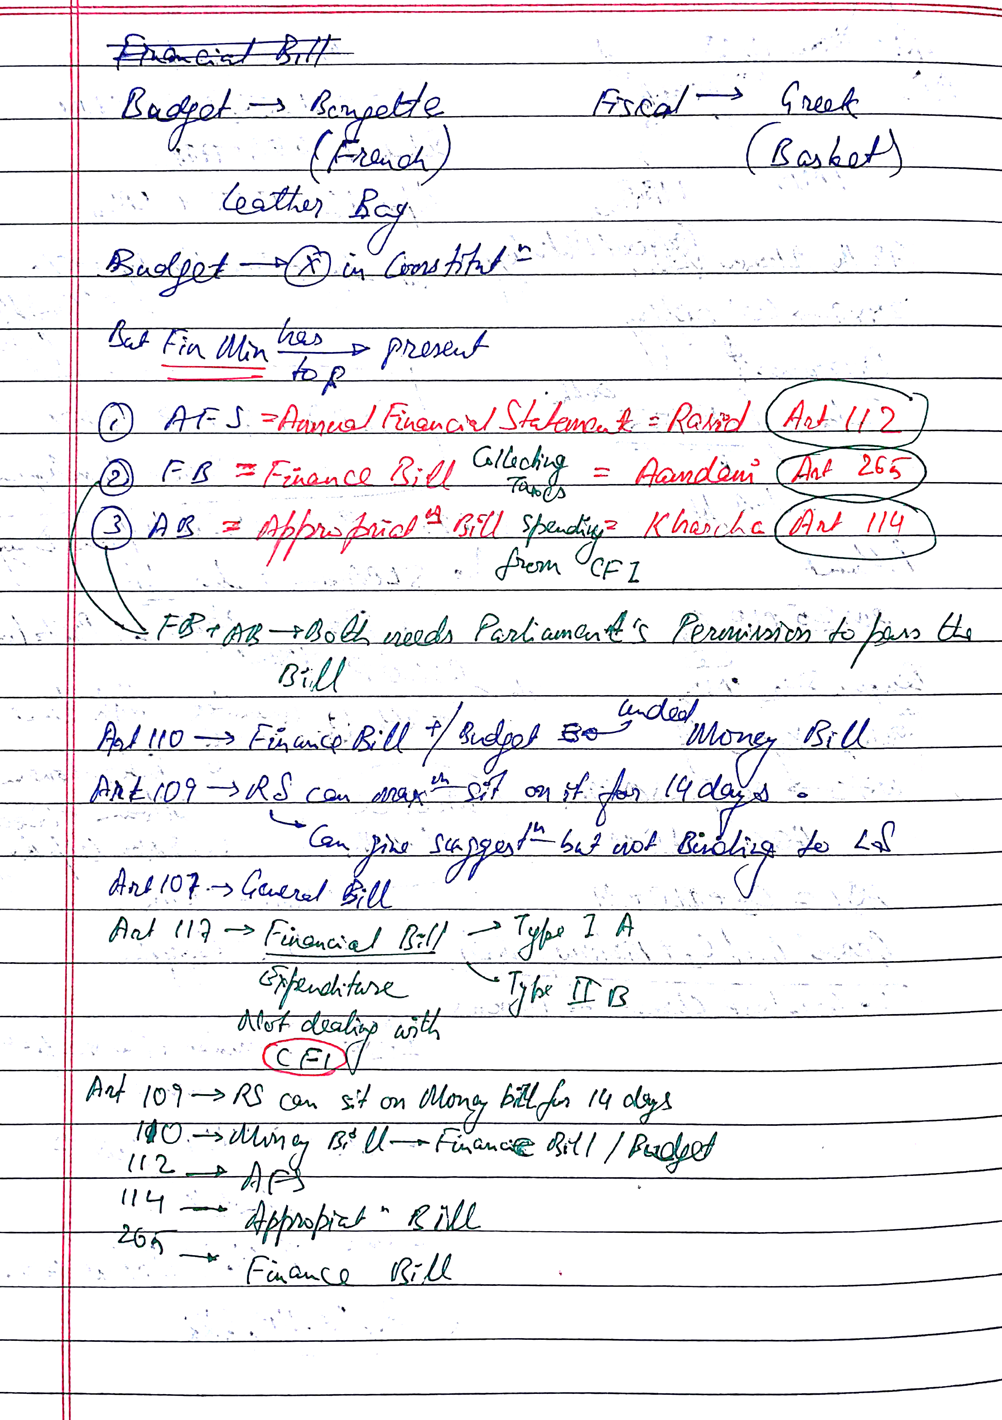 Financial Bill
Budget → Bougette Fiscal → Greek
(French) (Basket)
Leather Bag
Budget → (X) in Constitutⁿ
But Fin Min has to → present
① AFS = Annual Financial Statement = Rasid Art 112
② FB = Finance Bill Collecting Taxes = Aamdani Art 265
③ AB = Appropriatⁿ Bill spending from CFI = Kharcha Art 114
FB + AB → Both needs Parliament's Permission to pass the
Bill
Art 110 → Finance Bill +/Budget Money Bill
Art 109 → RS can maxᵐ sit on it for 14 days.
↳ Can give suggestⁿ but not Binding to LS
Art 107 → General Bill
Art 117 → Financial Bill → Type I A
Expenditure → Type II B
Not dealing with
CFI
Art 109 → RS can sit on Money bill for 14 days
110 → Money Bill → Finance Bill / Budget
112 → AFS
114 → Appropiatⁿ Bill
265 → Finance Bill